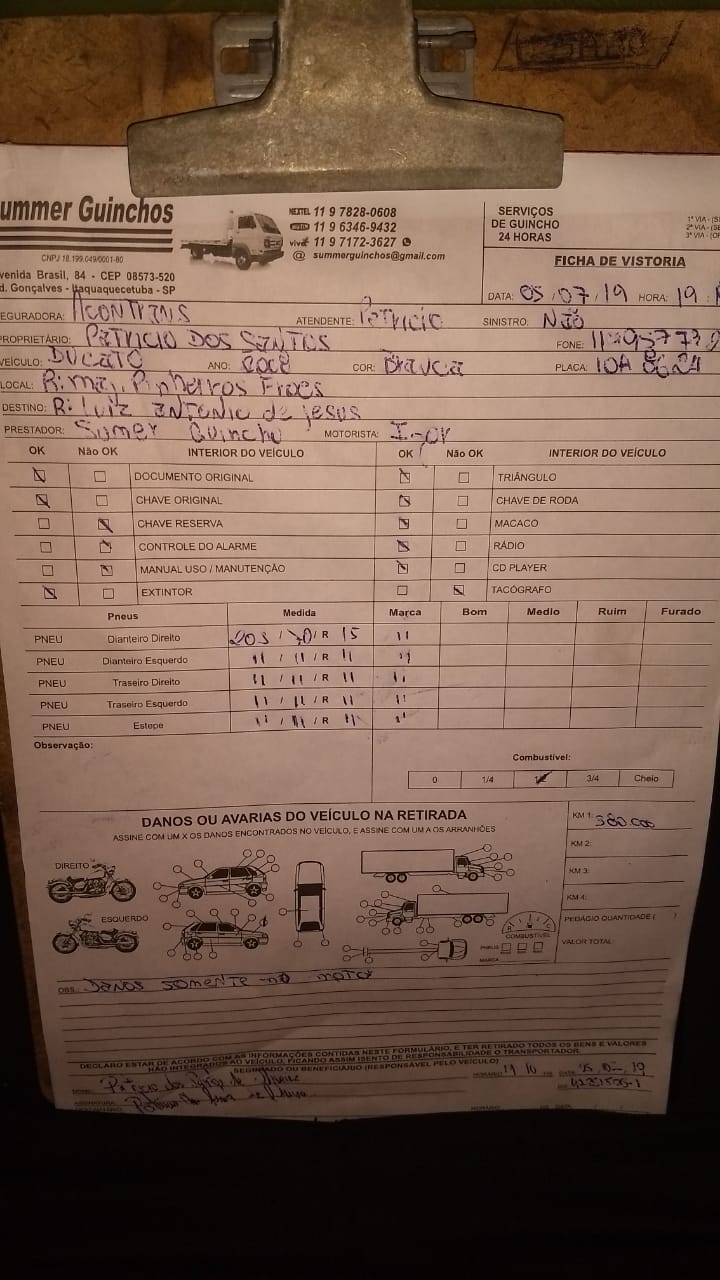 ummer Guinchos
CNPJ 18.199.049/0001-80
venida Brasil, 84 - CEP 08573-520
d. Gonçalves - Itaquaquecetuba - SP
NEXTEL 11 9 7828-0608
11 9 6346-9432
vivo 11 9 7172-3627
@ summerguinchos@gmail.com
SERVIÇOS
DE GUINCHO
24 HORAS
1ª VIA - (S
2ª VIA - (S
3ª VIA - (
FICHA DE VISTORIA
DATA: 05/07/19 HORA: 19
EGURADORA: Acontrans ATENDENTE: Patricio SINISTRO: Não
PROPRIETÁRIO: Patricio dos Santos FONE:
VEÍCULO: DUCATO ANO: 2008 COR: Branca PLACA:
LOCAL: R: Pinheiros Froes
DESTINO: R: Luiz Antonio de Jesus
PRESTADOR: Sumer Guincho MOTORISTA: Igor
OK Não OK INTERIOR DO VEÍCULO OK Não OK INTERIOR DO VEÍCULO
DOCUMENTO ORIGINAL TRIÂNGULO
CHAVE ORIGINAL CHAVE DE RODA
CHAVE RESERVA MACACO
CONTROLE DO ALARME RÁDIO
MANUAL USO / MANUTENÇÃO CD PLAYER
EXTINTOR TACÓGRAFO
Pneus Medida Marca Bom Medio Ruim Furado
PNEU Dianteiro Direito 205 / 70 / R 15 "
PNEU Dianteiro Esquerdo " / " / R " "
PNEU Traseiro Direito " / " / R " "
PNEU Traseiro Esquerdo " / " / R " "
PNEU Estepe " / " / R " "
Observação:
Combustível:
0 1/4 3/4 Cheio
DANOS OU AVARIAS DO VEÍCULO NA RETIRADA
ASSINE COM UM X OS DANOS ENCONTRADOS NO VEÍCULO, E ASSINE COM UM A OS ARRANHÕES
KM 1: 380.000
KM 2:
KM 3:
KM 4:
PEDÁGIO QUANTIDADE ( )
VALOR TOTAL:
DIREITO
ESQUERDO
COMBUSTÍVEL
PNEUS
MARCA
OBS.: Danos somente no motor
DECLARO ESTAR DE ACORDO COM AS INFORMAÇÕES CONTIDAS NESTE FORMULÁRIO, E TER RETIRADO TODOS OS BENS E VALORES
NÃO INTEGRADOS AO VEÍCULO, FICANDO ASSIM ISENTO DE RESPONSABILIDADE O TRANSPORTADOR.
SEGURADO OU BENEFICIÁRIO (RESPONSÁVEL PELO VEÍCULO)
NOME:
HORÁRIO
DATA
ASSINATURA: